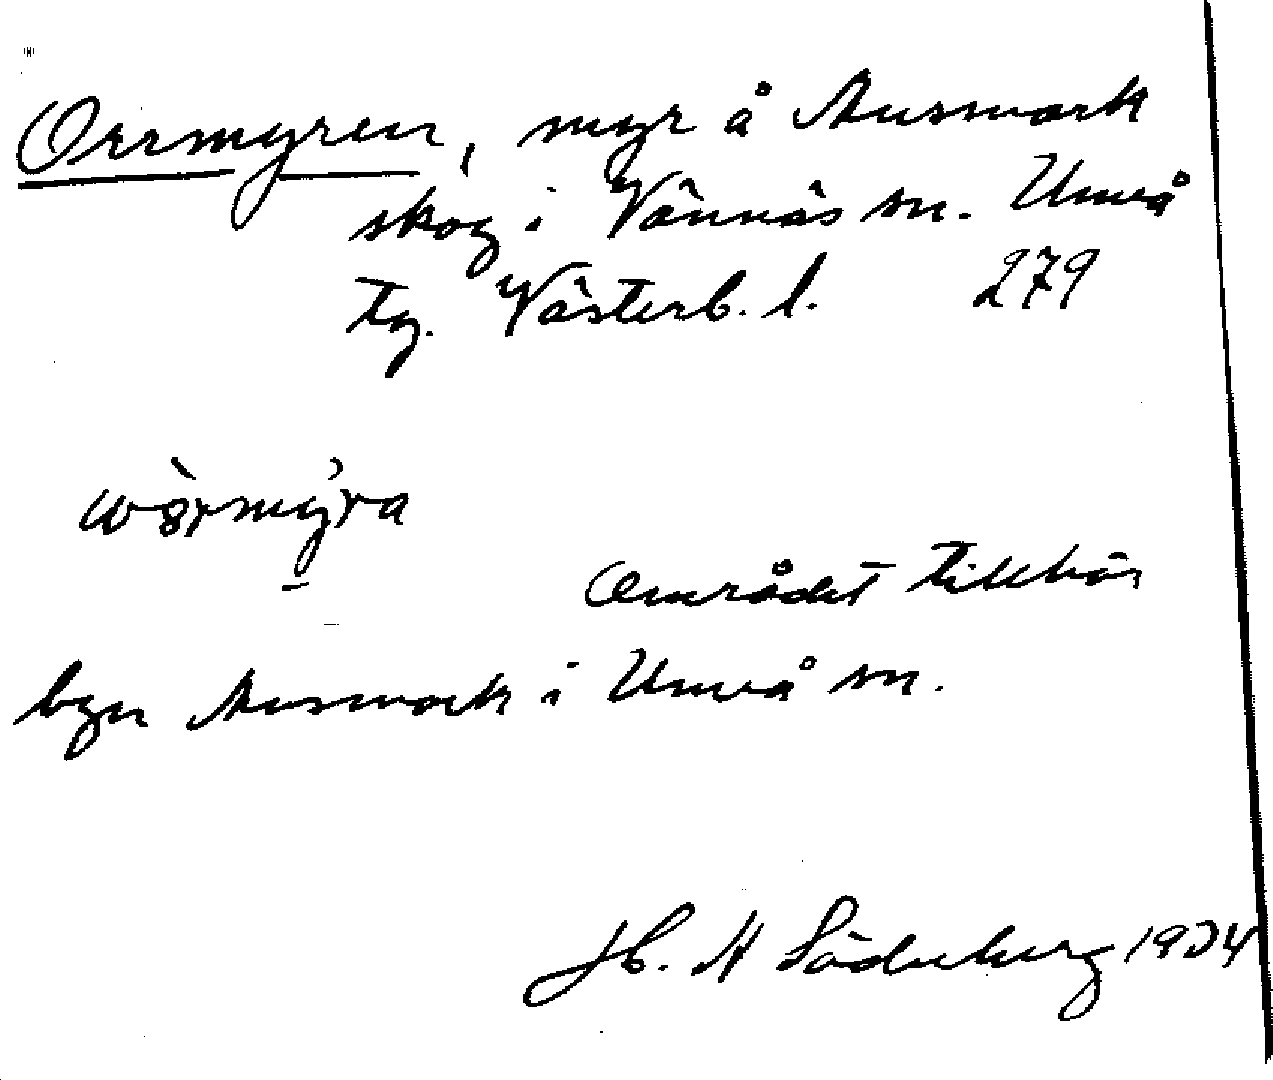 Orrmyren, myr å Ansmark
skog i Vännäs sn. Umeå
tg. Västerb. l. 279
Området tillhör
byn Ansmark i Umeå sn.
H. Söderberg 1934